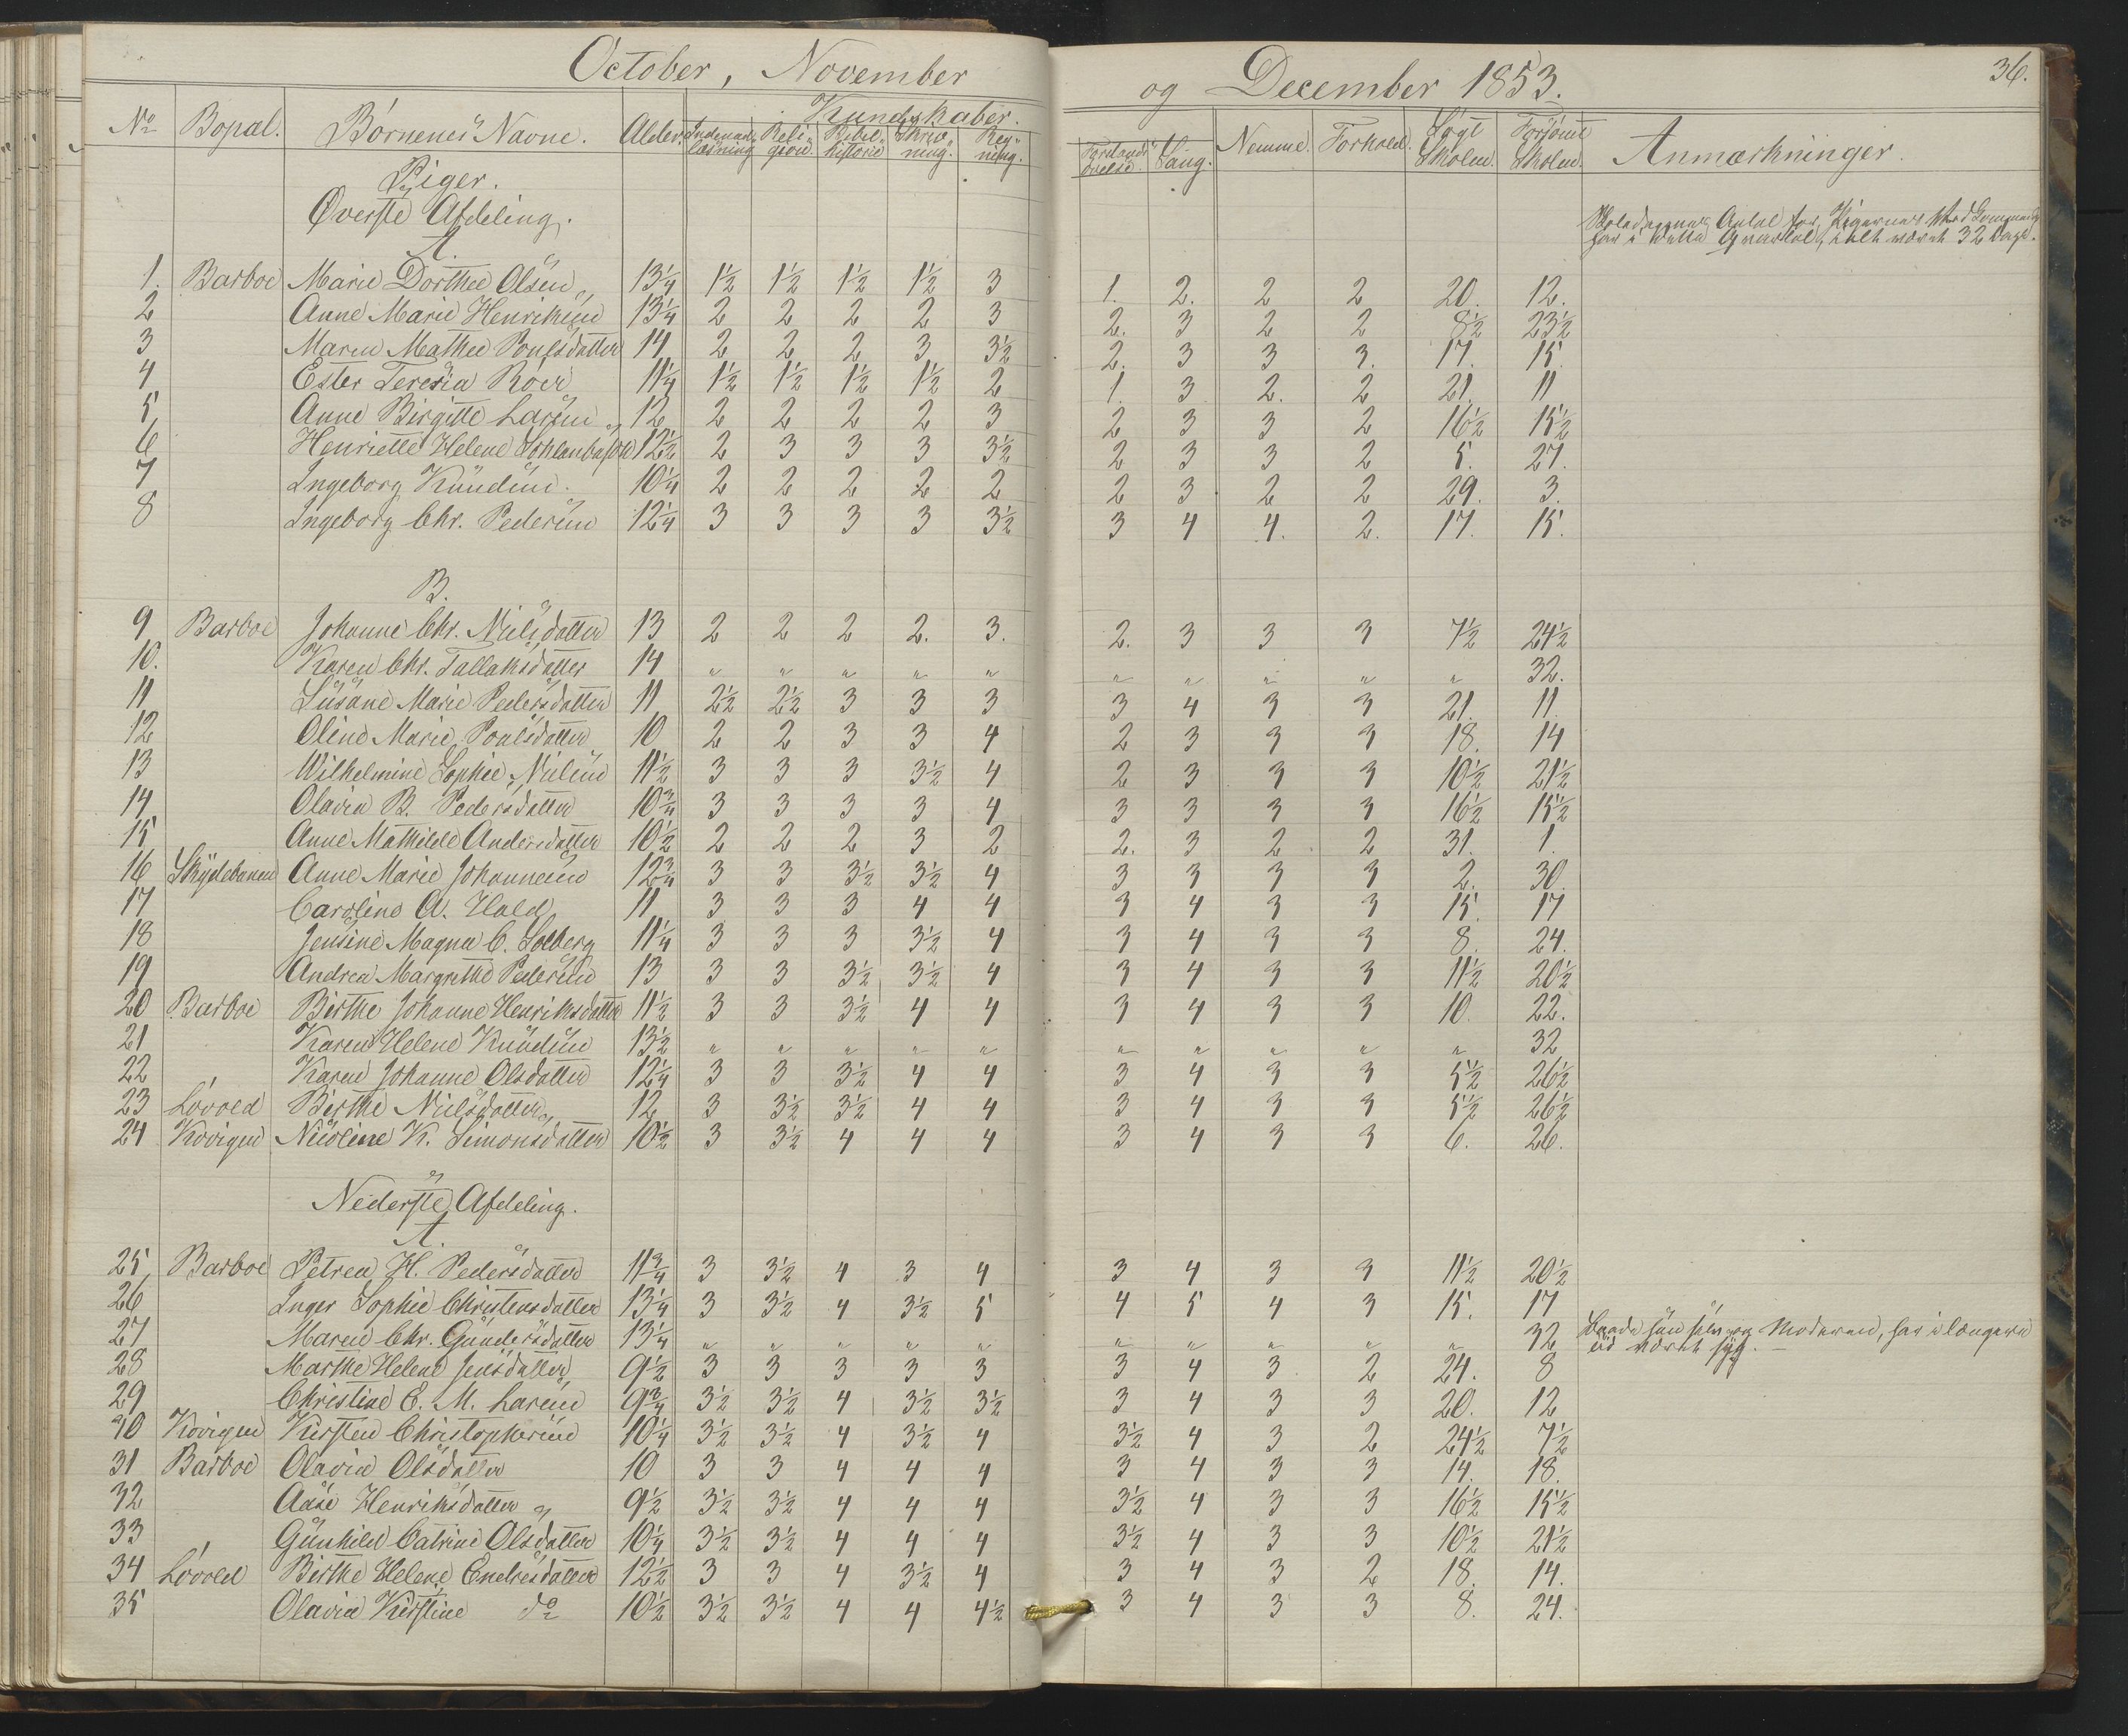 October, November og December 1853. 36.
Kundskaber.
No Bopæl. Børnenes Navne. Alder. Indenadslæsning Religion. Bibelhistorie Skrivning. Regning. Forstandsøvelse. Sang. Nemme. Forhold. Søgt Skolen. Forsømt Skolen. Anmærkninger.
Piger.
Øverste Afdeling.
Skoledagenes Antal for Pigernes
har i dette Qvartal, i alt været 32 Dage.
A.
1. Barboe Marie Dorthee Olsen 13¼ 1½ 1½ 1½ 1½ 3 1. 2. 2 2 20. 12.
2 Anne Marie Henriksen 13¼ 2 2 2 2 3 2. 3 2 2 8½ 23½
3 Maren Mathee Poulsdatter 14 2 2 2 3 3½ 2. 3 3 3. 17. 15.
4 Ester Teresia Röer 11¼ 1½ 1½ 1½ 1½ 2 1. 3 2. 2 21. 11
5 Anne Birgitte Larsen 12 2 2 2 2 3 2 3 3 2 16½ 15½
6 Henriette Helene 12½ 2 3 3 3 3½ 2 3 3 2 5. 27.
7 Ingeborg Knudsen. 10¼ 2 2 2 2 2 2 3 2 2 29. 3.
8 Ingeborg Chr. Pedersen 12¼ 3 3 3 3 3½ 3 4 4. 2. 17. 15.
B.
9 Barboe Johanne Chr. Nielsdatter 13 2 2 2 2. 3. 2. 3 3 3 7½ 24½
10. Karen Chr. Tallaksdatter 14 " " " " " " " " " " 32.
11 Susane Marie Pedersdatter 11 2½ 2½ 3 3 3 3 4 3 3 21. 11.
12 Oline Marie Poulsdatter 10 2 2 3 3 4 2 3 3 3 18. 14
13 Wilhelmine Sophie Nielsen 11½ 3 3 3 3½ 4 2 3 3 3 10½ 21½
14 Olavia B. Pedersdatter 10¾ 3 3 3 3 4 3 3 3 3 16½ 15½
15 Anne Mathilde Andersdatter 10½ 2 2 2 3 2 2. 3 2 2 31. 1.
16 Skydebanen Anne Marie Johannesen 12¾ 3 3 3½ 3½ 4 3 3 3 3 2. 30.
17 Caroline A. Hald 11 3 3 3 4 4 3 4 3 3 15. 17
18 Jensine Magna C. Solberg 11¼ 3 3 3 3½ 4 3 4 3 3 8. 24.
19 Andrea Margrethe Pedersen 13 3 3 3½ 3½ 4 3 4 3 3 11½ 20½
20 Barboe Birthe Johanne Henriksdatter 11½ 3 3 3½ 4 4 3 4 3 3 10. 22.
21 Karen Helene Knudsen 13½ " " " " " " " " " " 32
22 Karen Johanne Olsdatter 12¼ 3 3 3½ 4 4 3 4 3 3 5½ 26½
23 Lövold Birthe Nielsdatter 12 3 3½ 3½ 4 4 3 4 3 3 5½ 26½
24 Kovigen Nicoline K. Simonsdatter 10½ 3 3½ 4 4 4 3 4 3 3 6. 26.
Nederste Afdeling.
A.
25 Barboe Petrea H. Pedersdatter 11¾ 3 3½ 4 3 4 3 4 3 3 11½ 20½
26 Inger Sophie Christensdatter 13¼ 3 3½ 4 3½ 5 4 5 4 3 15. 17
27 Maren Chr. Gundersdatter 13¼ " " " " " " " " " " 32 Baade hun selv og Moderen, har i længere
Tid været syg.
28 Marthe Helene Jensdatter 9½ 3 3 3 3 3 3 4 3 2 24. 8
29 Christine E. M. Larsen 9¾ 3½ 3½ 4 3½ 3½ 3 4 3 3 20. 12
30 Kovigen Kirsten Christophersen 10¼ 3½ 3½ 4 3½ 4 3½ 4 3 2 24½ 7½
31 Barboe Olavia Olsdatter 10 3 3 4 4 4 3 4 3 3 14. 18.
32 Aase Henriksdatter 9½ 3½ 3½ 4 4 4 3½ 4 3 3 16½ 15½
33 Gunhild Catrine Olsdatter 10¼ 3½ 3½ 4 4 4 3½ 4 3 3 10½ 21½
34 Lövold Birthe Helene Endresdatter 12½ 3 3 4 3½ 4 3 4 3 2 18. 14.
35 Olavia Kirstine do 10½ 3½ 3½ 4 4 4½ 3 4 3 3 8. 24.